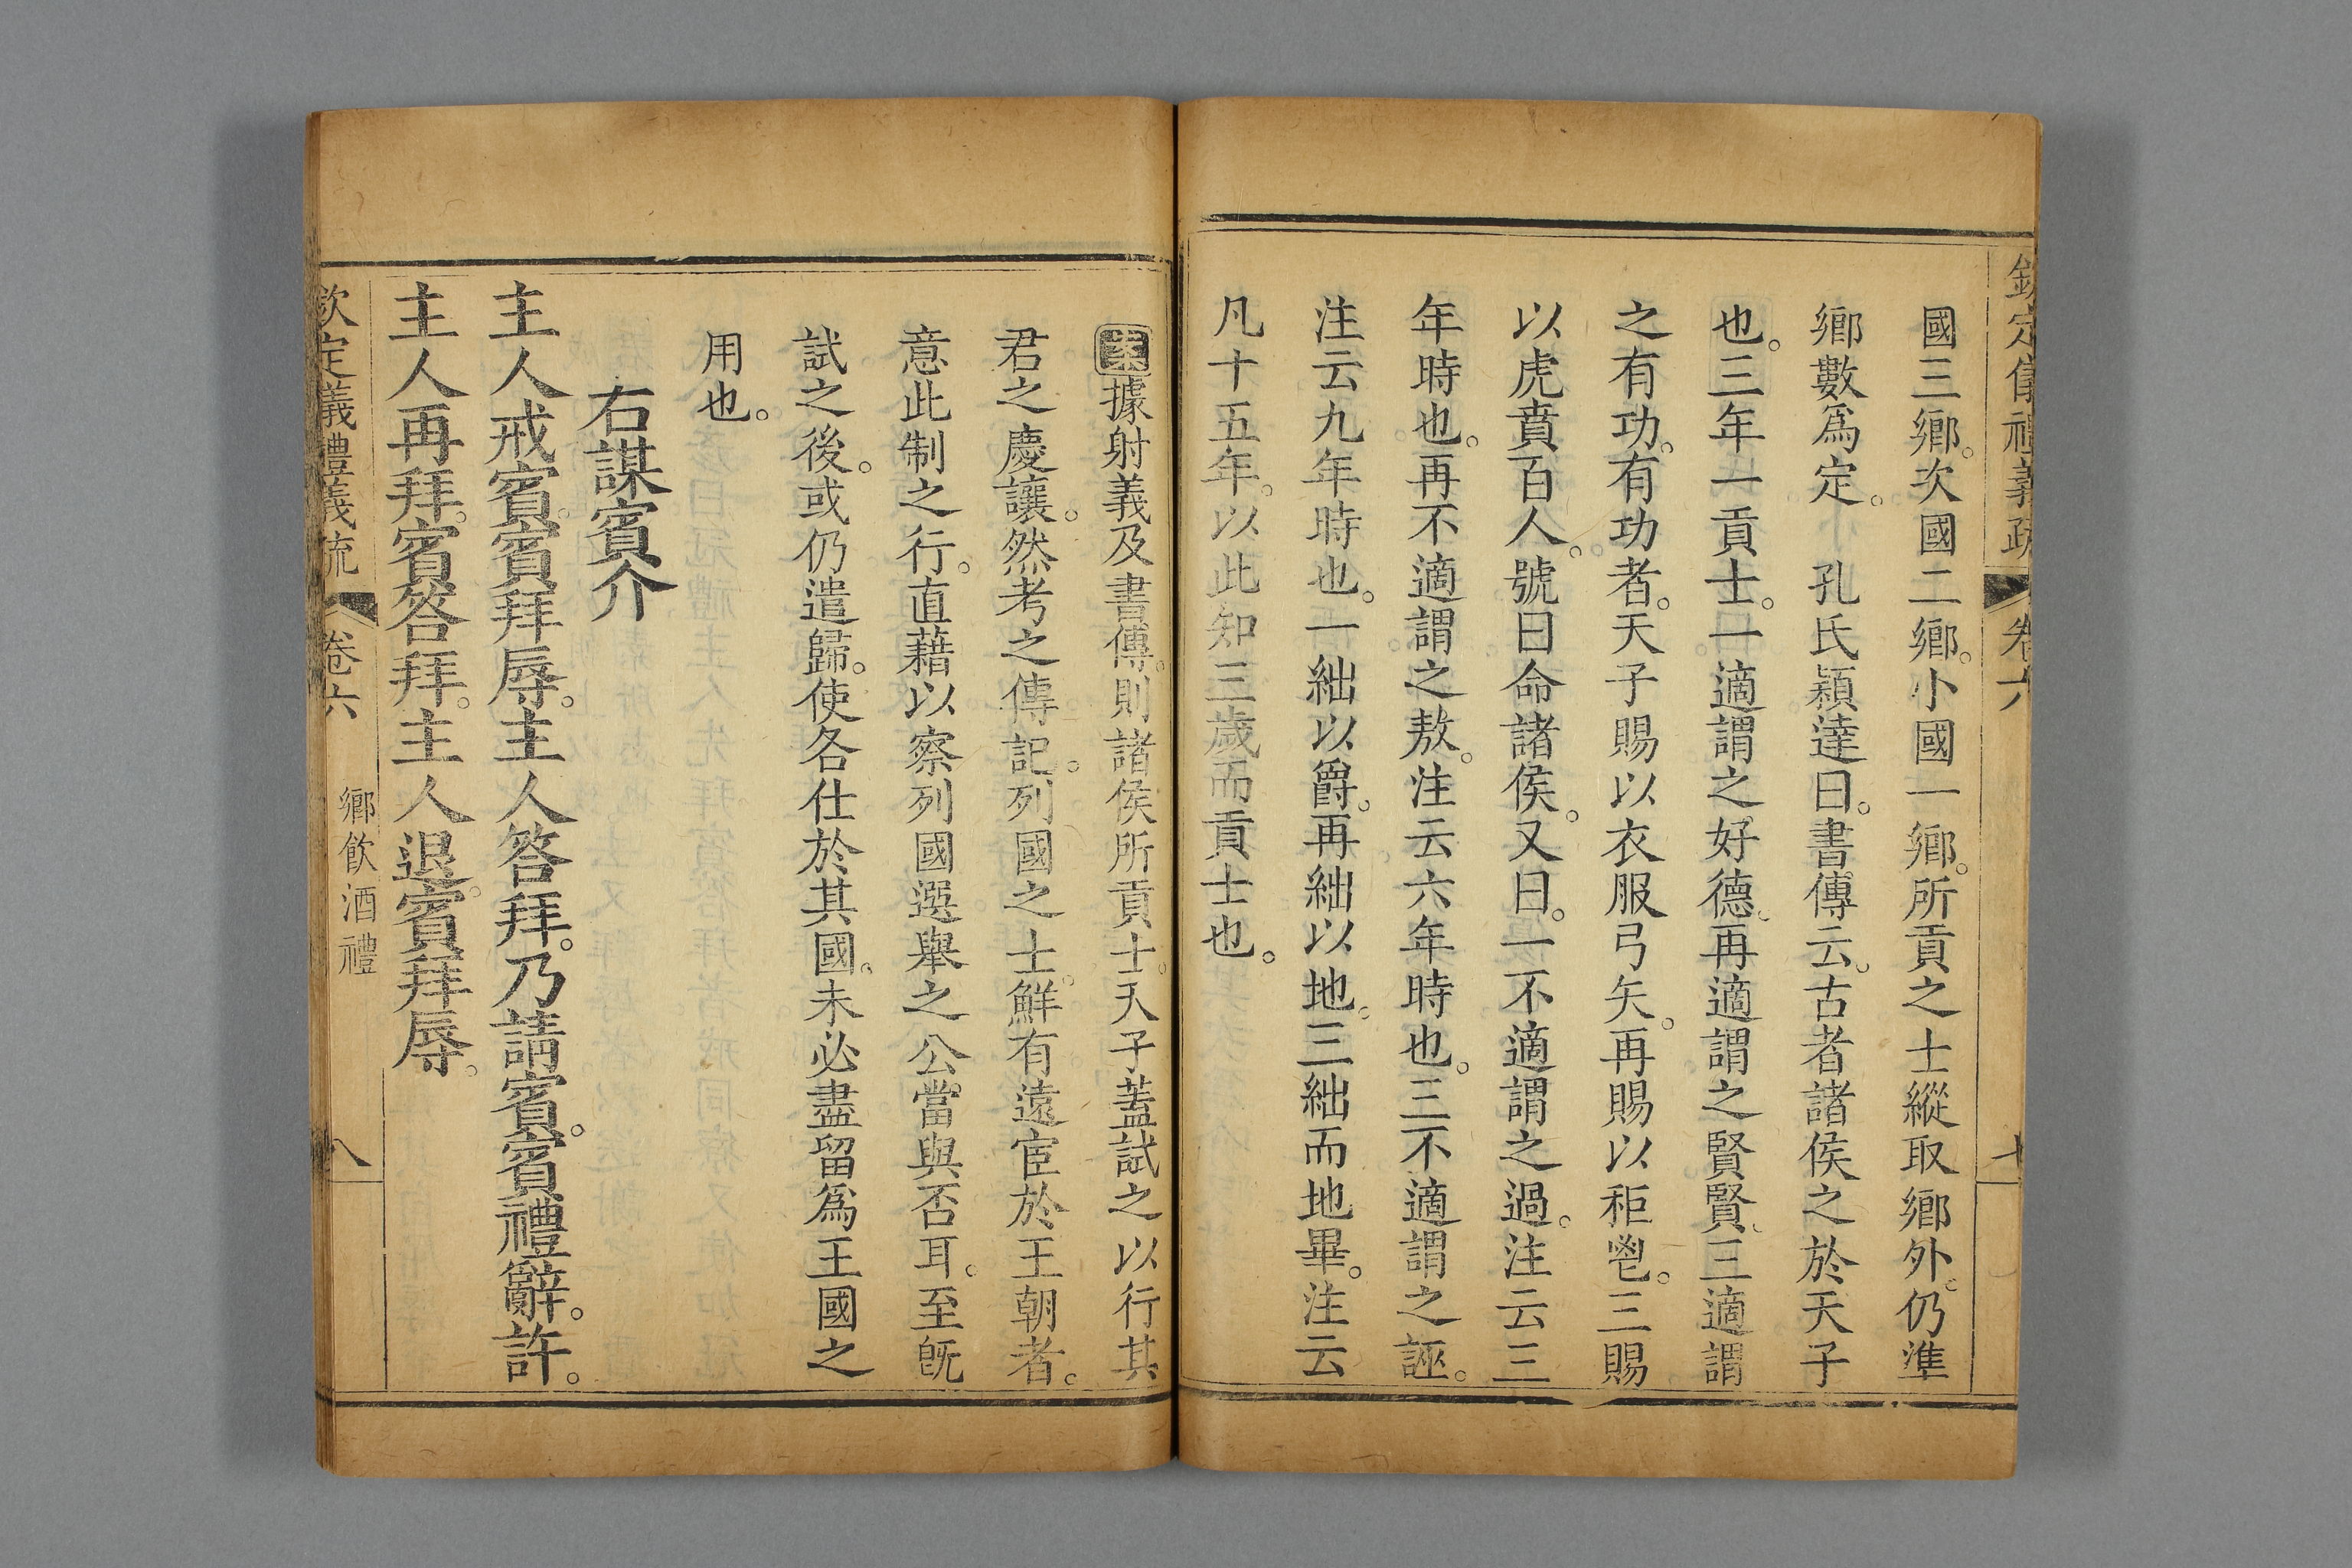 欽定儀禮義疏 卷六 七
國三鄉。次國二鄉。小國一鄉。所貢之士縱取鄉外。仍準
鄉數爲定。 孔氏穎達曰。書傳云。古者諸侯之於天子
也。三年一貢士。一適謂之好德。再適謂之賢賢。三適謂
之有功。有功者。天子賜以衣服弓矢。再賜以秬鬯。三賜
以虎賁百人。號曰命諸侯。又曰。一不適謂之過。注云三
年時也。再不適謂之敖。注云六年時也。三不適謂之誣。
注云九年時也。一絀以爵。再絀以地。三絀而地畢。注云
凡十五年。以此知三歲而貢士也。
案據射義及書傳。則諸侯所貢士。天子蓋試之以行其
君之慶讓。然考之傳記。列國之士。鮮有遠宦於王朝者。
意此制之行。直藉以察列國選舉之公。當與否耳。至旣
試之後。或仍遣歸。使各仕於其國。未必盡留爲王國之
用也。
右謀賓介
主人戒賓。賓拜辱。主人答拜。乃請賓。賓禮辭。許。
主人再拜。賓答拜。主人退。賓拜辱。
欽定義禮義疏 卷六 鄉飲酒禮 八